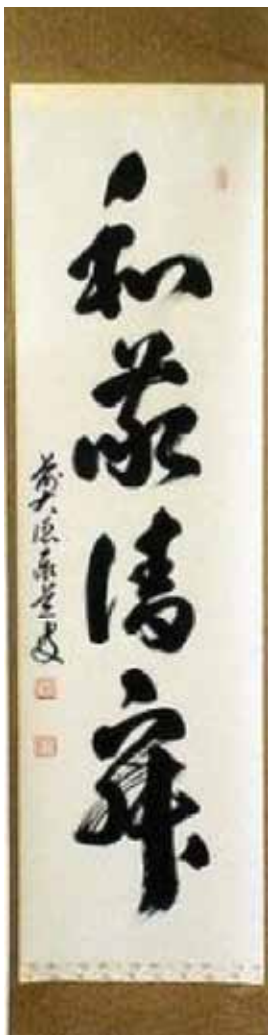 和敬清寂
前大徳